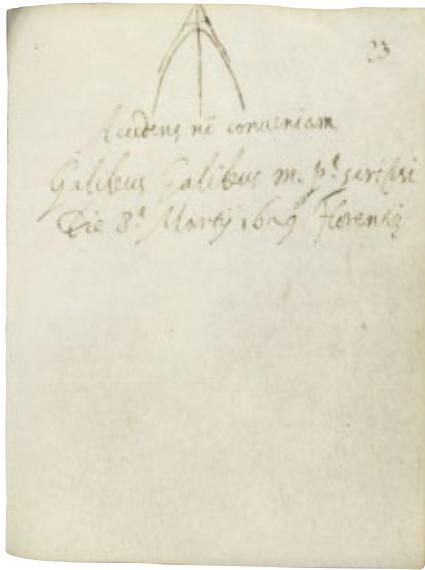 23
Accedens nõ conveniam
Galileus Galileus m. pª scripsi
Die 8ª Martij 1629 Florentię